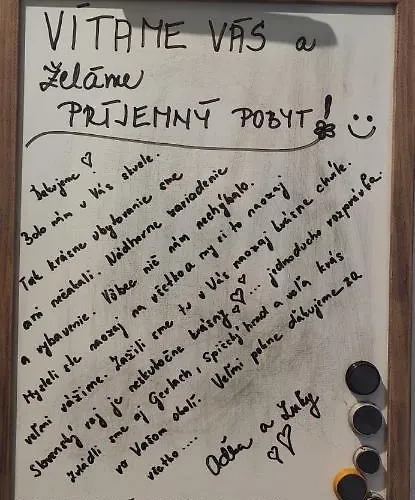 VÍTAME VÁS a
želáme
PRÍJEMNÝ POBYT!
Ďakujeme ♡
Bolo nám u Vás skvele.
Tak krásne ubytovanie sme
ani nečakali. Nádherne zariadenie
a vybavenie. Vôbec nič nám nechýbalo.
Mysleli ste naozaj na všetko a my si to naozaj
veľmi vážime. Zažili sme tu u Vás naozaj krásne chvíle.
Slovenský raj je neskutočne krásny ♡... jednoducho rozprávka.
Zvládli sme aj Gerlach, Spišský hrad a veľa krás
vo Vašom okolí. Veľmi pekne ďakujeme za
všetko....
Aďka a Lucky
♡♡